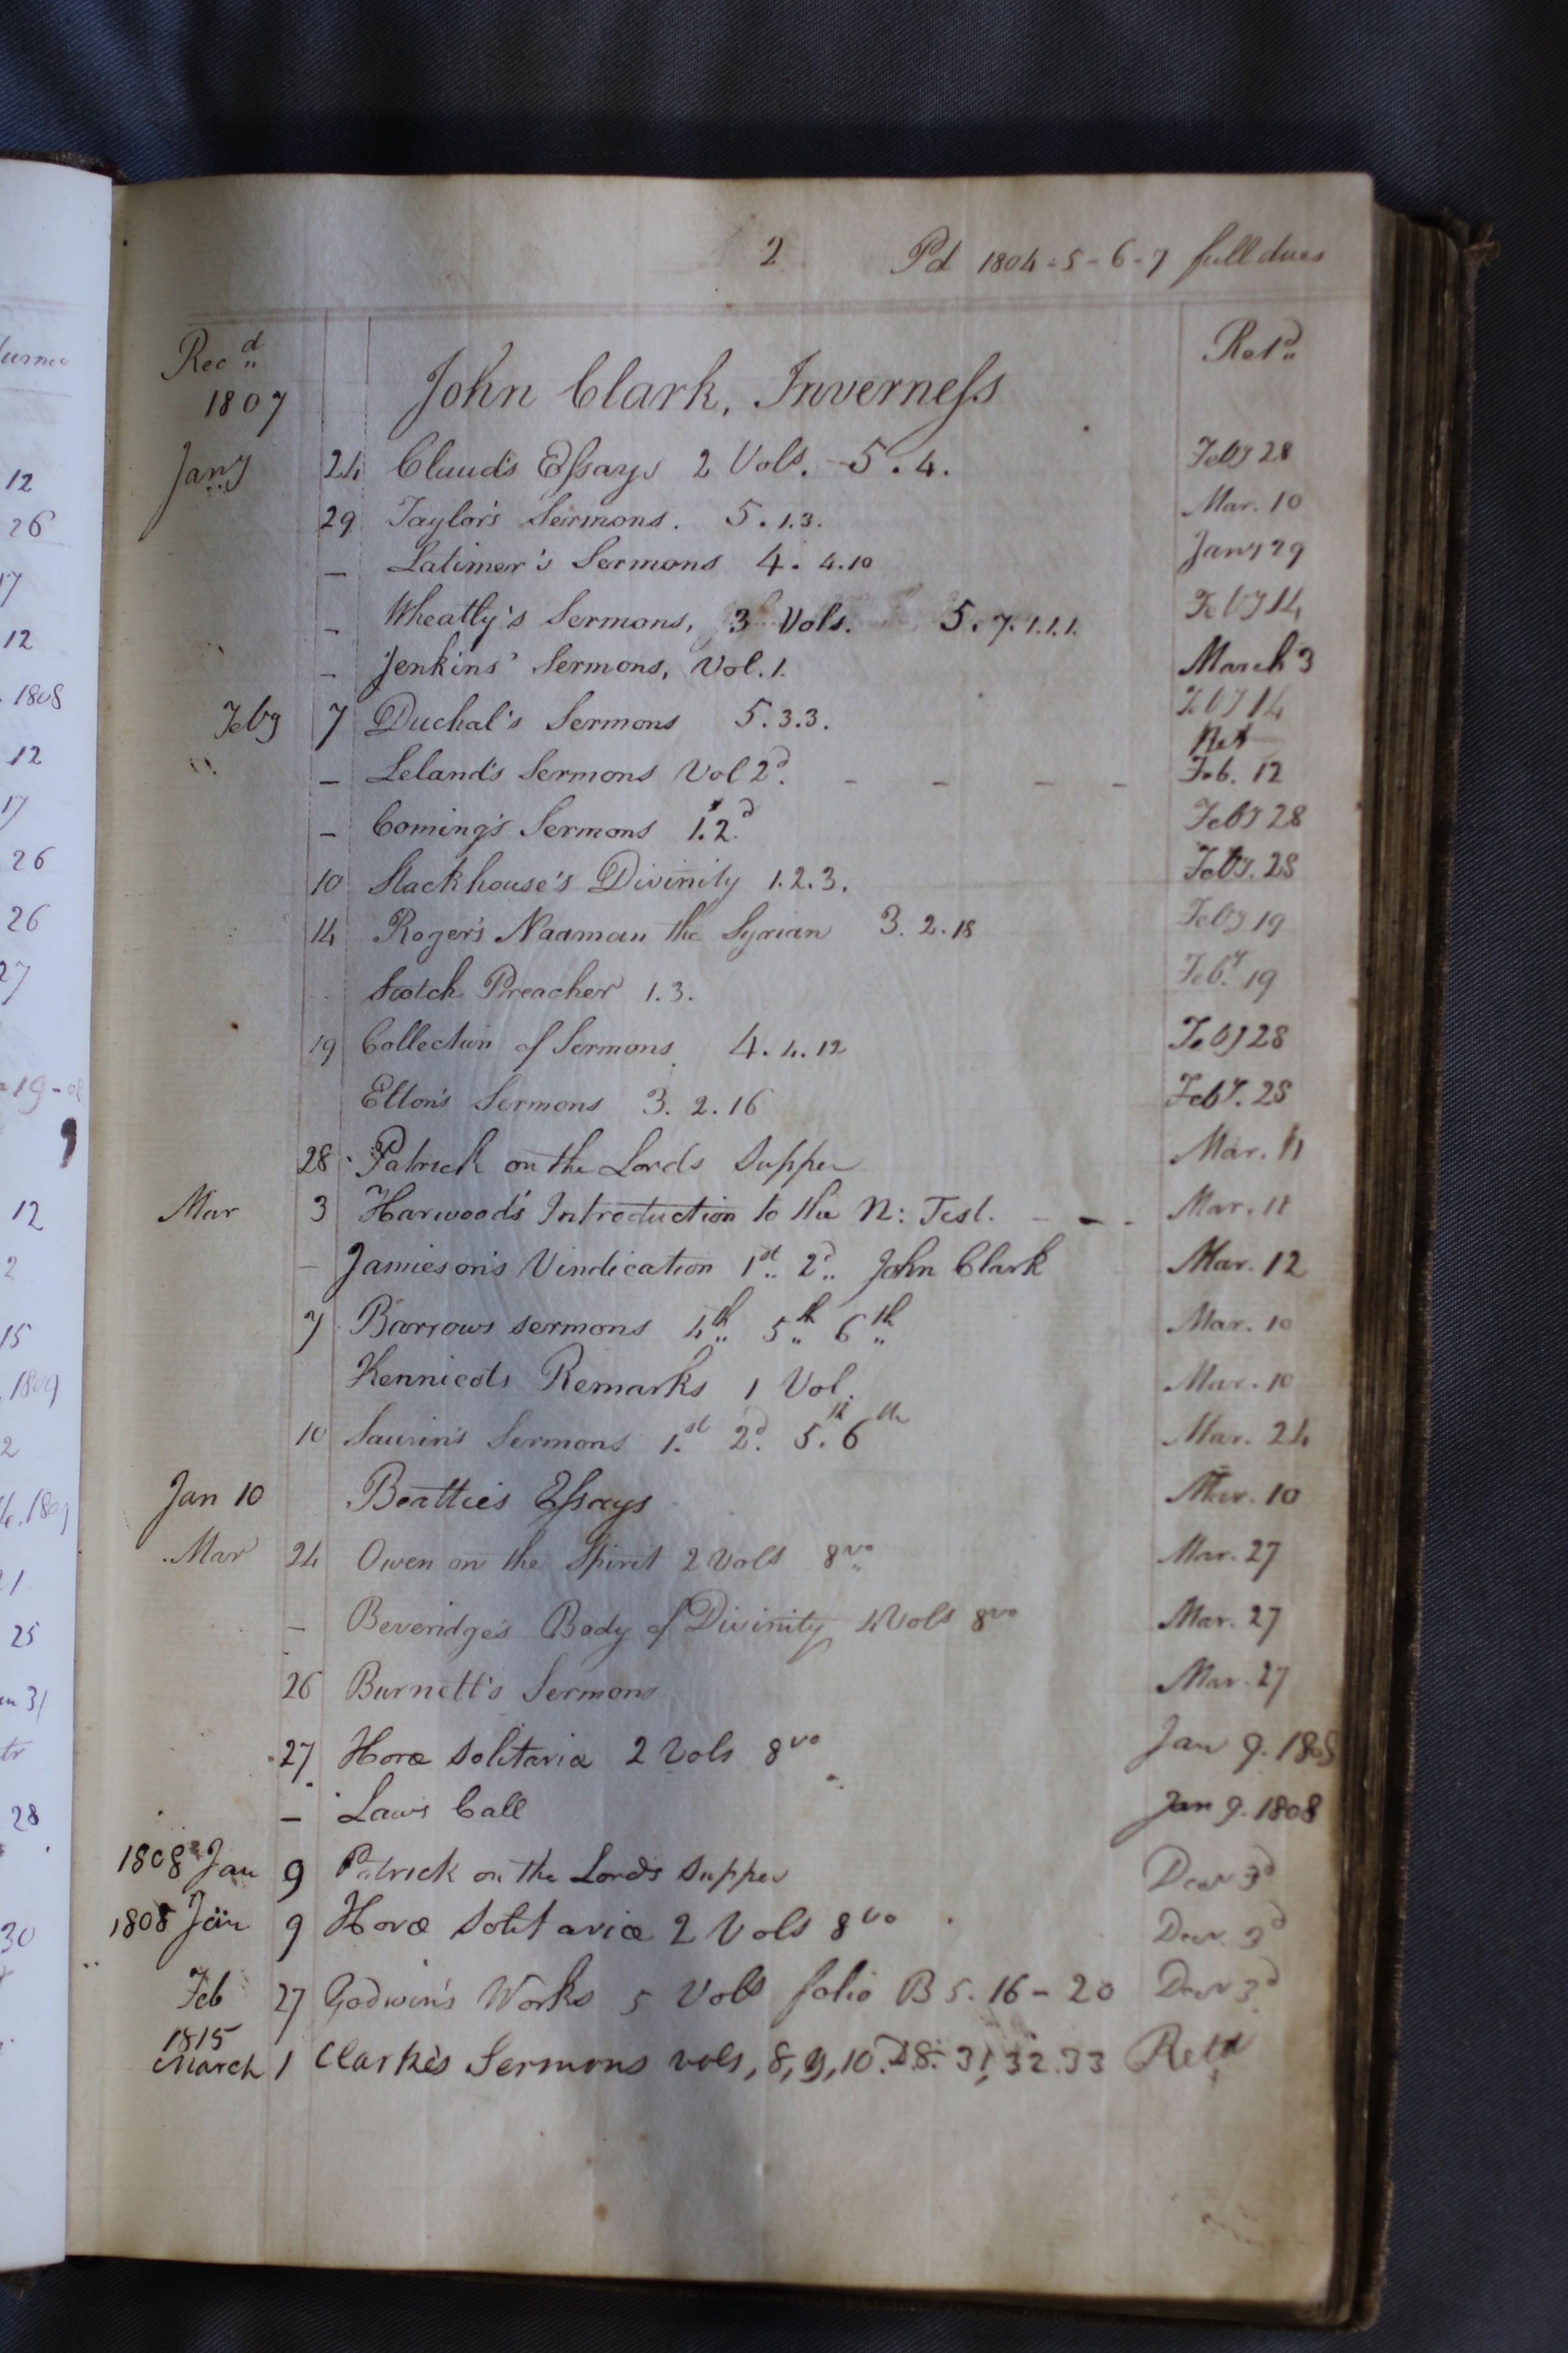 2 Pd 1804-5-6-7 full dues
Recd Retd
1807 John Clark, Inverneſs
Jany 24 Claud's Eſsays 2 Vols. 5.4. Feby 28
29 Taylor's Sermons. 5.1.3. Mar. 10
– Latimer's Sermons 4. 4.10 Jany 29
– Wheatly's Sermons, 3 Vols. 5.7.1.1.1. Feby 14
– Jenkins' Sermons, Vol. 1. March 3
Feby 7 Duchal's Sermons 5.3.3. Feby 14
Ret
– Leland's Sermons Vol 2d. – – – – Feb. 12
– Coming's Sermons 1.2d Feby 28
10 Stackhouse's Divinity 1.2.3. Feby. 28
14 Roger's Naaman the Syrian 3.2.18 Feby 19
Scotch Preacher 1.3. Feby. 19
19 Collection of Sermons 4.4.12 Feby 28
Elton's Sermons 3.2.16 Feby. 28
28 Patrick on the Lords Supper Mar. 11
Mar 3 Harwood's Introduction to the N: Test. – – – Mar. 11
– Jamieson's Vindication 1st 2d John Clark Mar. 12
7 Barrows sermons 4th 5th 6th Mar. 10
Kennicots Remarks 1 Vol. Mar. 10
10 Saurin's Sermons 1st 2d. 5.th 6th Mar. 24
Jan 10 Beattie's Eſsays Mar. 10
Mar 24 Owen on the Spirit 2 Vols 8vo Mar. 27
– Beveridge's Body of Divinity 4 Vols 8vo Mar. 27
26 Burnett's Sermons Mar. 27
27 Horæ Solitariæ 2 Vols 8vo Jan 9. 1808
– Laws Call Jan 9. 1808
1808 Jan 9 Patrick on the Lords Supper Decr 3d
1808 Jan 9 Horæ Solitariæ 2 Vols 8vo Decr. 3d
Feb 27 Godwin's Works 5 Vols folio B 5. 16–20 Decr 3d
1815
March 1 Clarke's Sermons vols, 8, 9, 10. D8. 31, 32. 33 Retd